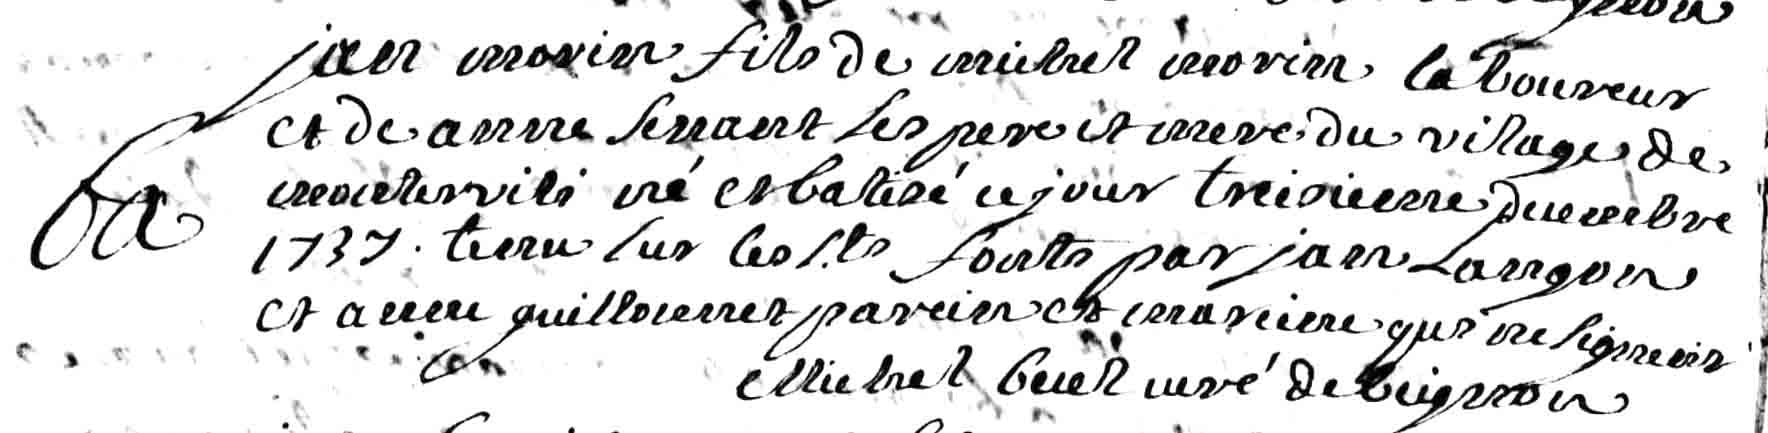 jan morin fils de michel morin laboureur
et de anne senant ses pere et mere du vilage de
né et batisé ce jour treisieme decembre
1737. tenu sur les sts fonts par jan Langon
ba
et anne guillouenet parein et mareine qui ne signent
Michel curé de beignon